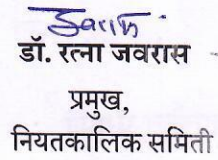 डॉ. रत्ना जवरास
प्रमुख,
नियतकालिक समिती